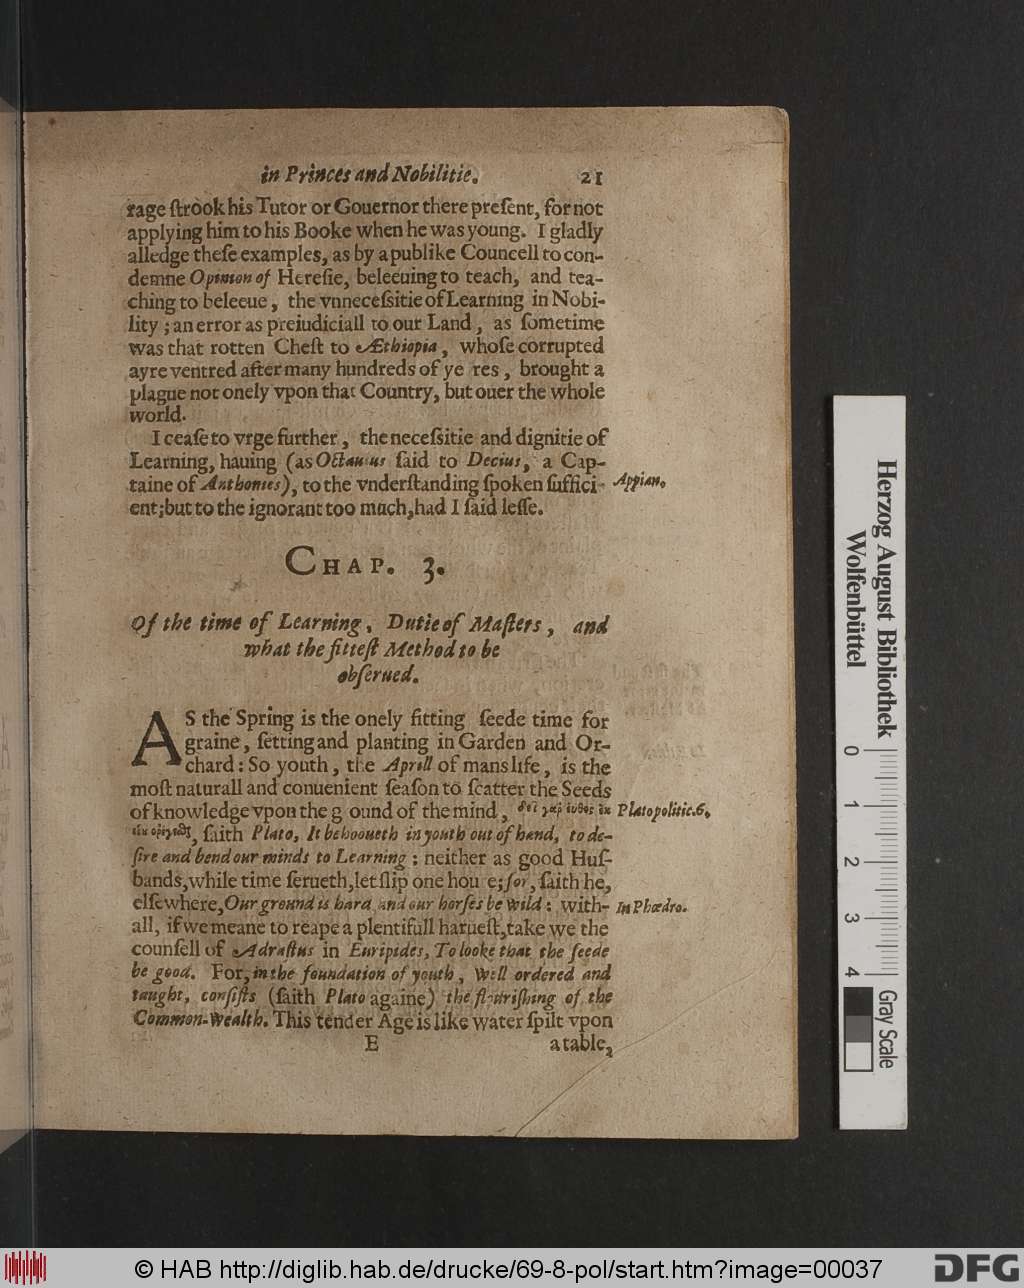 in Princes and Nobilitie. 21
rage ſtrook his Tutor or Gouernor there preſent, for not
applying him to his Booke when he was young. I gladly
alledge theſe examples, as by a publike Councell to con-
demne Opinion of Hereſie, beleeuing to teach, and tea-
ching to beleeue, the vnneceſsitie of Learning in Nobi-
lity; an error as preiudiciall to our Land, as ſometime
was that rotten Cheſt to Æthiopia, whoſe corrupted
ayre ventred after many hundreds of ye res, brought a
plague not onely vpon that Country, but ouer the whole
world.
I ceaſe to vrge further, the neceſsitie and dignitie of
Learning, hauing (as Octauius ſaid to Decius, a Cap-
taine of Anthonies), to the vnderſtanding ſpoken ſuffici-
Appian.
ent; but to the ignorant too much, had I ſaid leſſe.
CHAP. 3.
Of the time of Learning, Dutie of Maſters, and
what the fitteſt Method to be
obſerued.
AS the Spring is the onely fitting ſeede time for
graine, ſetting and planting in Garden and Or-
chard: So youth, the Aprill of mans life, is the
moſt naturall and conuenient ſeaſon to ſcatter the Seeds
of knowledge vpon the g ound of the mind,
Plato politic. 6.
ſaith Plato, It behooueth in youth out of hand, to de-
ſire and bend our minds to Learning: neither as good Huſ-
bands, while time ſerueth, let ſlip one hou e; for, ſaith he,
elſewhere, Our ground is hard, and our horſes be wild: with-
In Phædro.
all, if we meane to reape a plentifull harueſt, take we the
counſell of Adraſtus in Euripides, To looke that the ſeede
be good. For, in the foundation of youth, well ordered and
taught, conſiſts (ſaith Plato againe) the flouriſhing of the
Common-wealth. This tender Age is like water ſpilt vpon
E a table,
Herzog August Bibliothek
Wolfenbüttel
0 1 2 3 4
Gray Scale
© HAB http://diglib.hab.de/drucke/69-8-pol/start.htm?image=00037
DFG